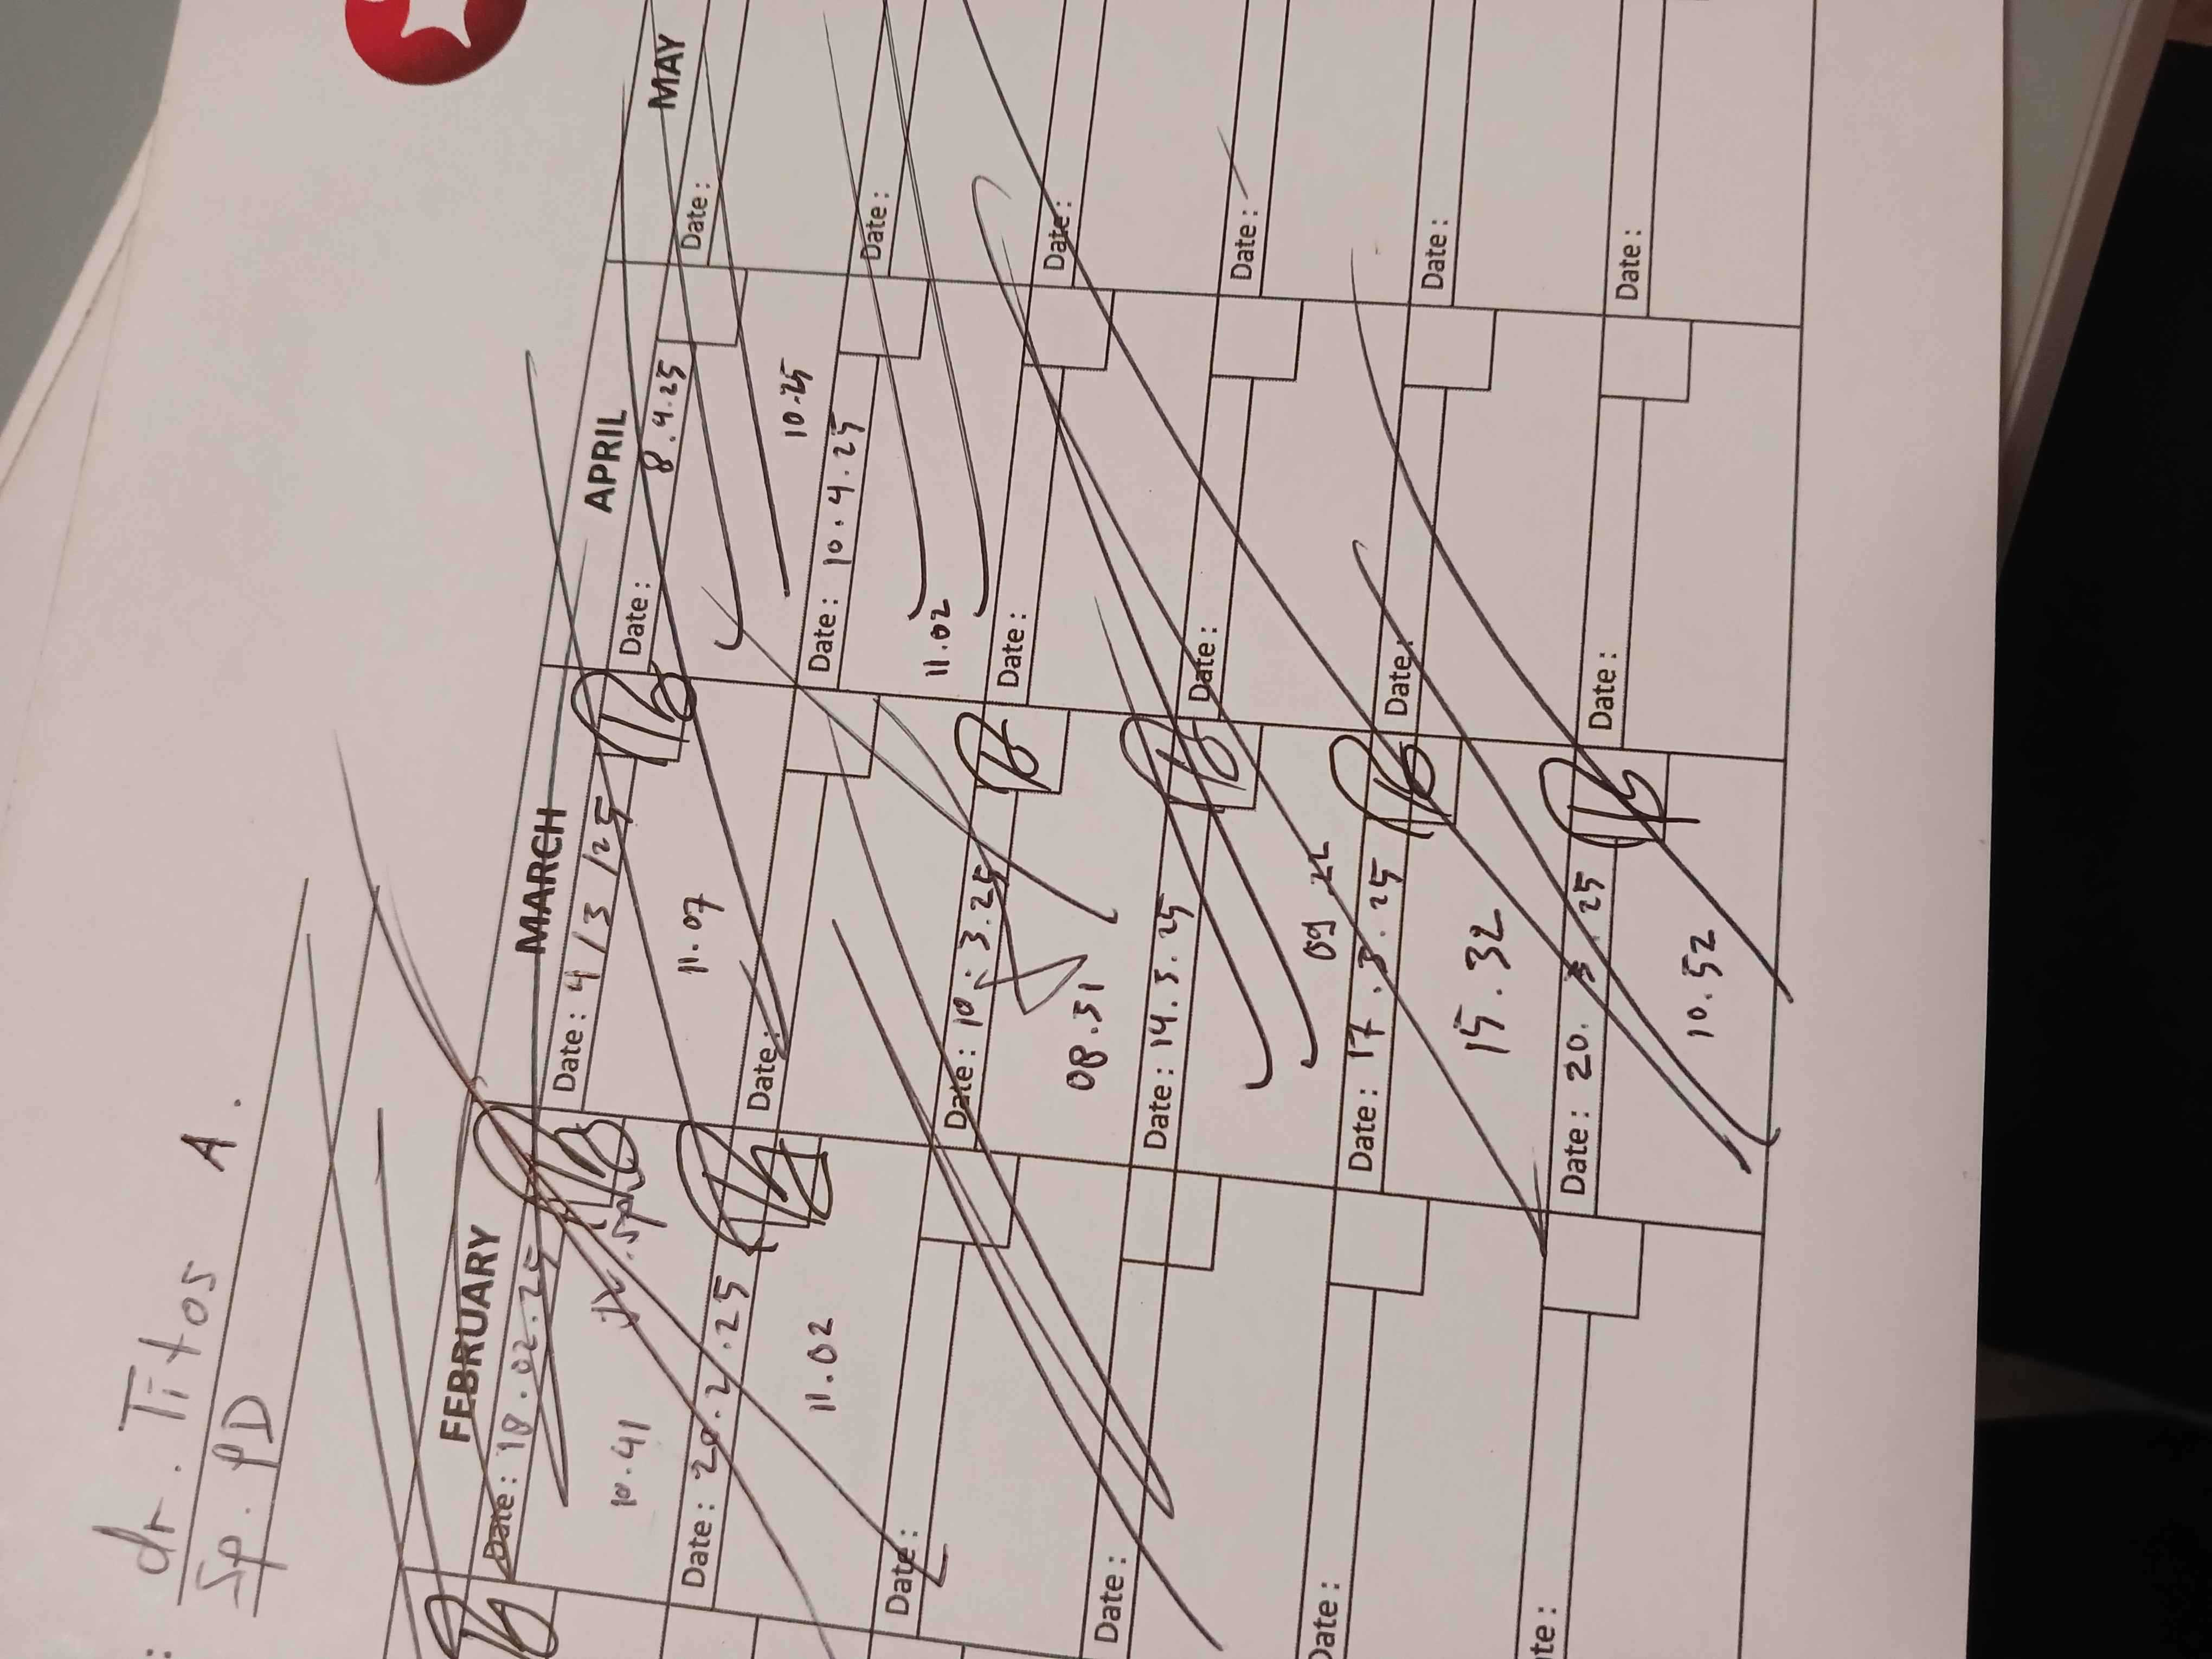 : dr. Titos A.
Sp. PD
FEBRUARY
MARCH
APRIL
MAY
Date: 18.02.25
10.41
Date: 4/3/25
11.07
Date: 8.4.25
10.25
Date:
Date: 20.2.25
11.02
Date:
Date: 10.4.25
11.02
Date:
Date:
Date: 10.3.25
08.31
Date:
Date:
Date:
Date: 14.3.25
Date:
Date:
Date:
Date: 17.3.25
15.32
Date:
Date:
te:
Date: 20.3.25
10.52
Date:
Date: